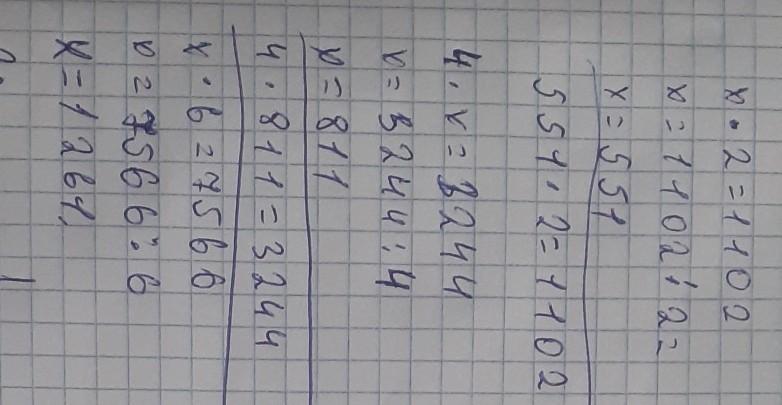 x · 2 = 1102
x = 1102 : 2 =
x = 551
551 · 2 = 1102
4 · x = 3244
x = 3244 : 4
x = 811
4 · 811 = 3244
x · 6 = 7566
x = 7566 : 6
x = 1261.